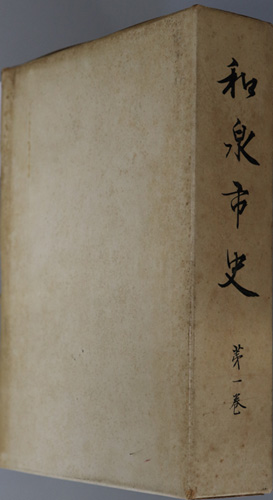 和泉市史
第一巻